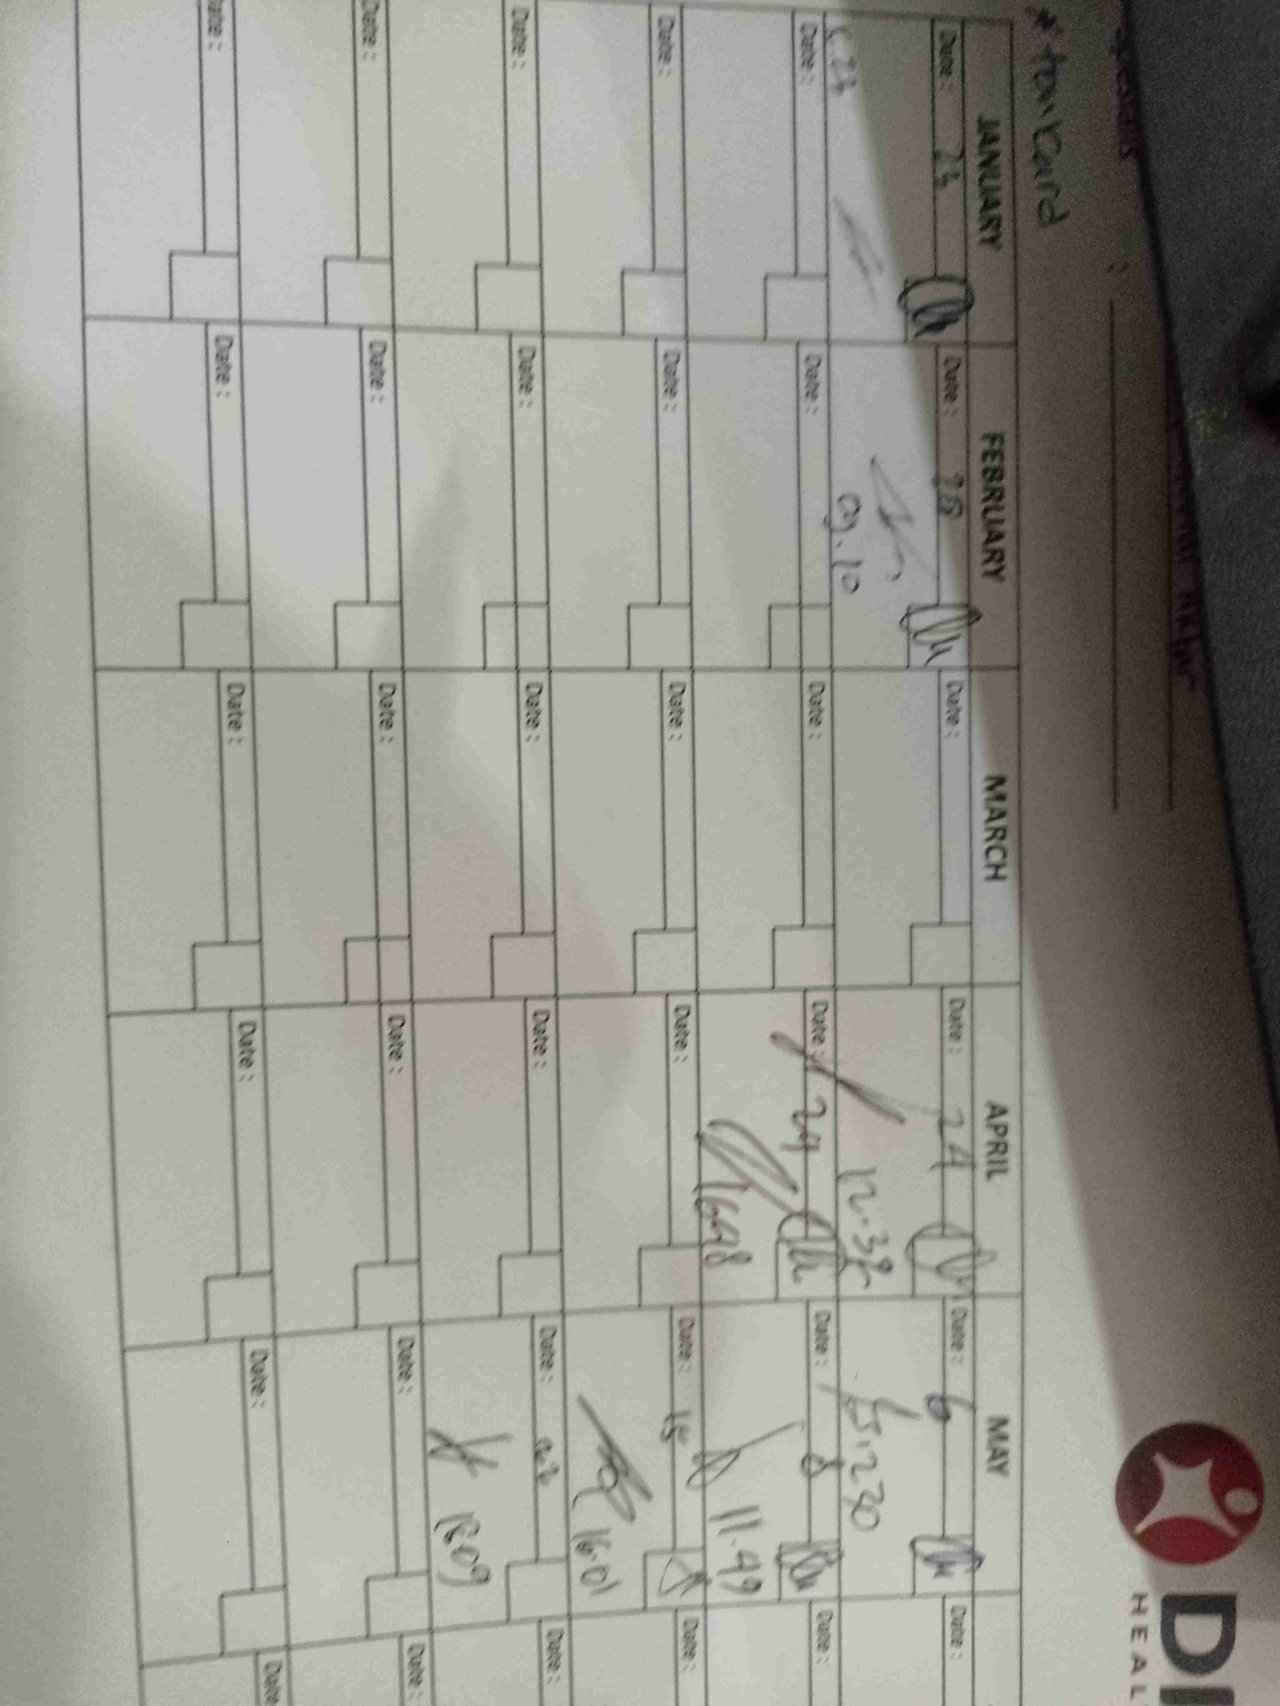 DI
HEAL
* towcard
:
JANUARY FEBRUARY MARCH APRIL MAY
Date: 24 Date: Date: Date: 24 Date: 6 Date:
09.10 12.38
Date: Date: Date: Date: 29 Date: 8 Date:
11.49
Date: Date: Date: Date: Date: 15 Date:
16.01
Date: Date: Date: Date: Date: Date:
18.09
Date: Date: Date: Date: Date: Date:
Date: Date: Date: Date: Date: Date